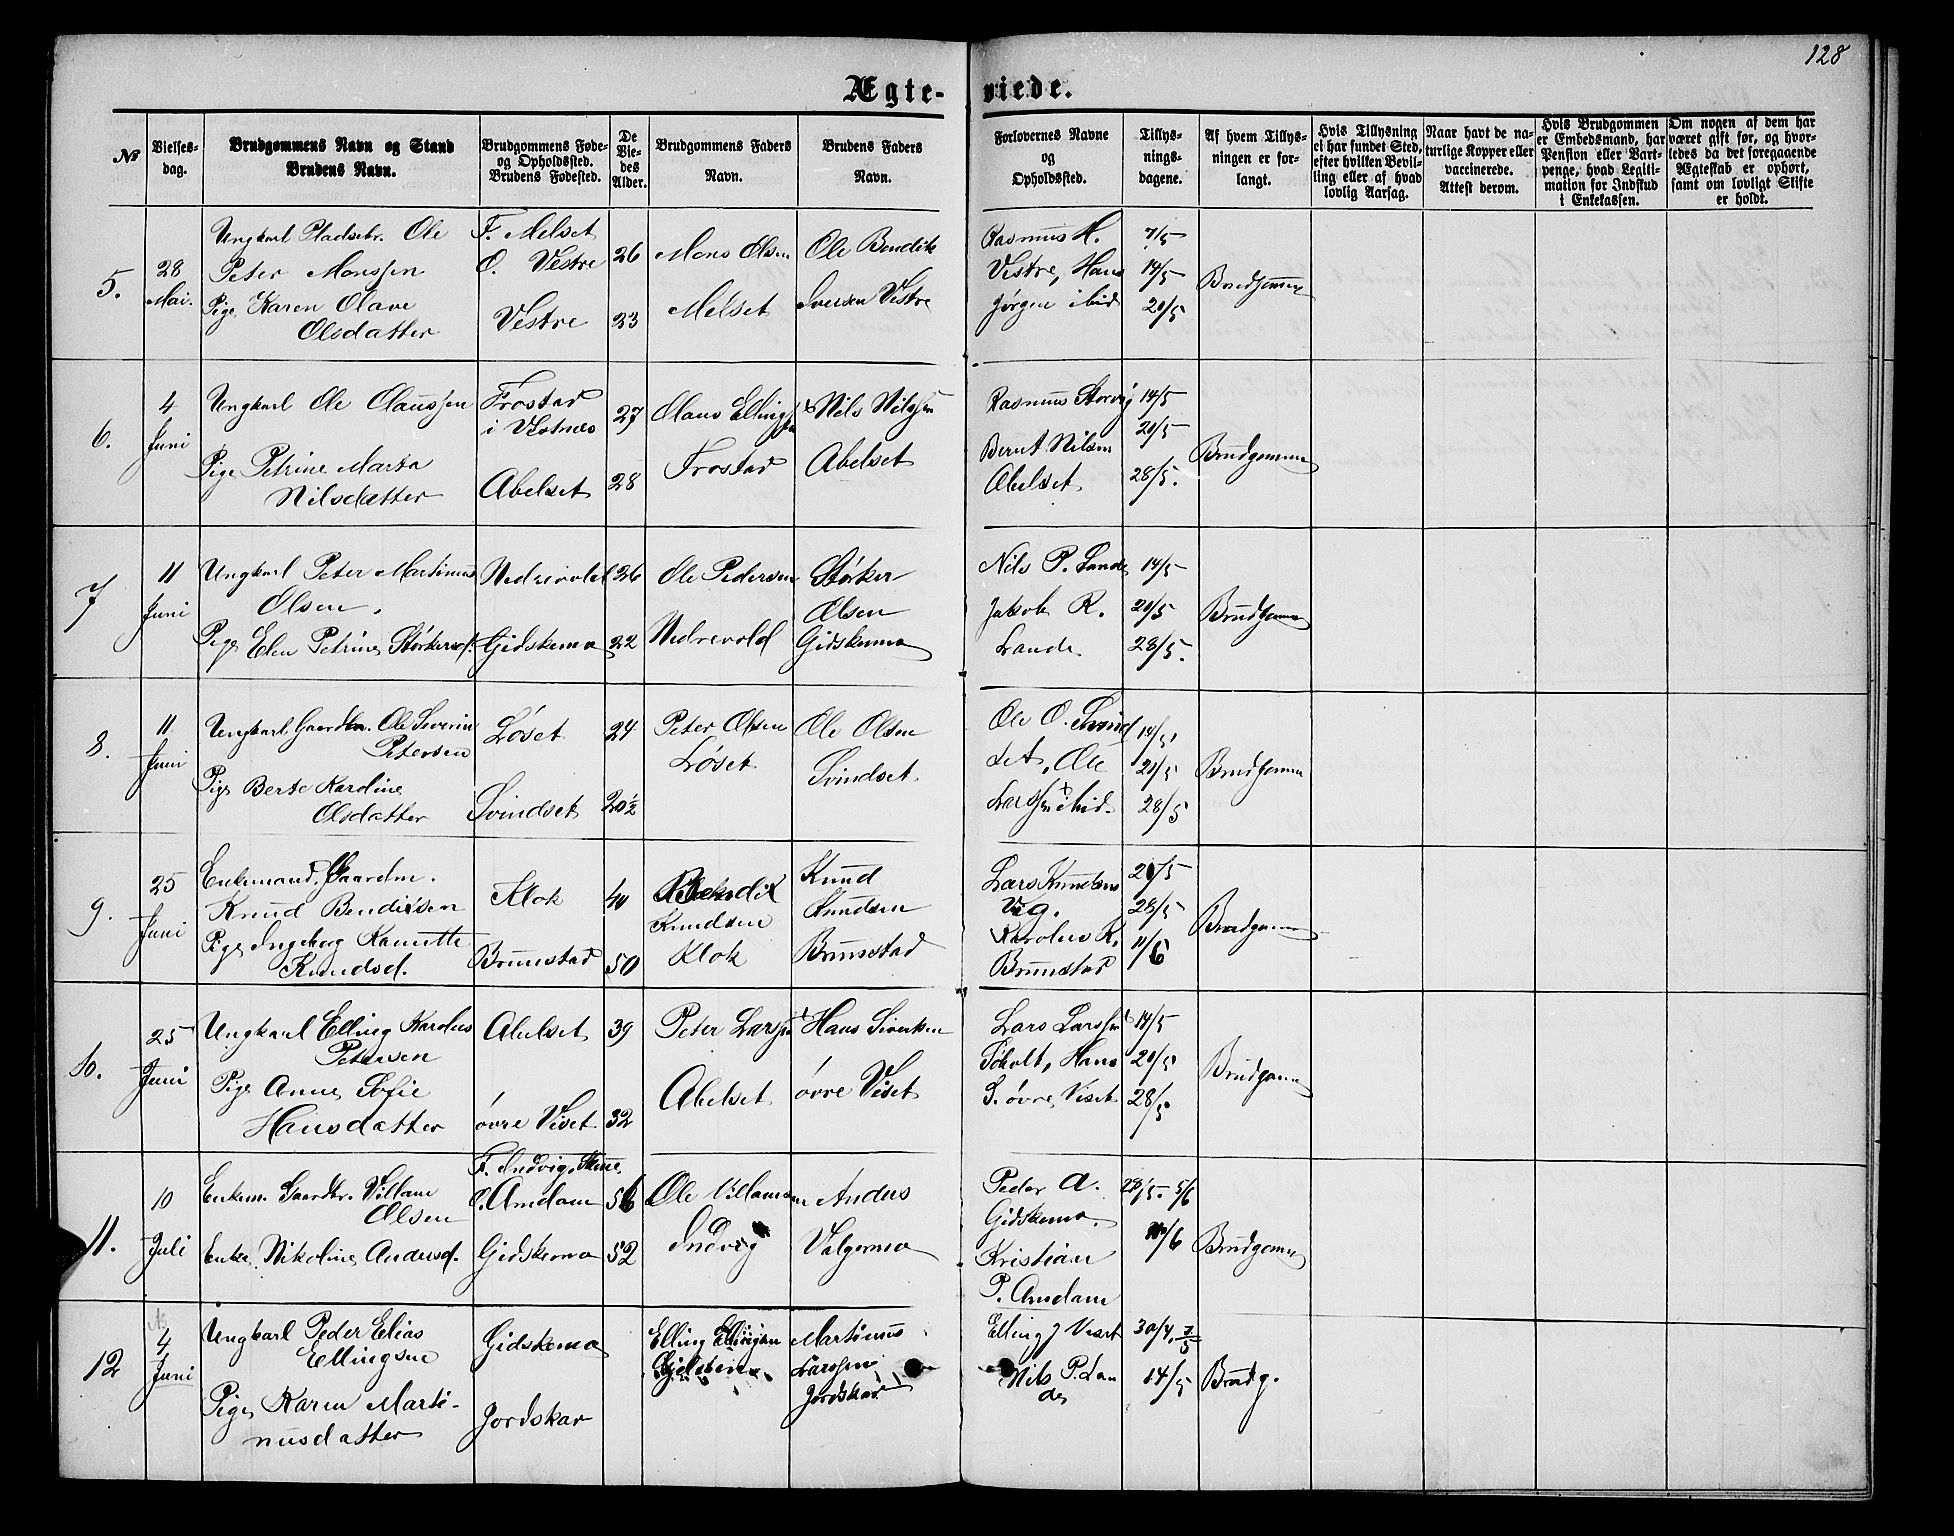 128
Ægte-viede.
№
Vielses-
dag.
Brudgommens Navn og Stand
Brudens Navn.
Brudgommens Føde-
og Opholdssted.
Brudens Fødested.
De
Vie-
des
Alder.
Brudgommens Faders
Navn.
Brudens Faders
Navn.
Forlovernes Navne
og
Opholdssted.
Tillys-
nings-
dagene.
Af hvem Tillys-
ningen er for-
langt.
Hvis Tillysning
ei har fundet Sted,
efter hvilken Bevil-
ling eller af hvad
lovlig Aarsag.
Naar havt de na-
turlige Kopper eller
vaccinerede.
Attest derom.
Hvis Brudgommen
er Embedsmand, har
Pension eller Vart-
penge, hvad Legiti-
mation for Indskud
i Enkekassen.
Om nogen af dem har
været gift før, og hvor-
ledes da det foregaaende
Ægteskab er ophørt,
samt om lovligt Skifte
er holdt.
5.
28
Mai.
Ungkarl Pladsbr. Ole
Peter Monssen
Pige Karen Olave
Olsdatter
F. Melset
O. Vestre
Vestre
26
23
Mons Olsen
Melset
Ole Bendik
Iversen Vestre
Rasmus H.
Vestre, Hans
Jørgen ibid
7/5
14/5
20/5
Brudgommen
6.
4
Juni
Ungkarl Ole Claussen
Pige Petrine Marta
Nilsdatter
Frostad
i Vestnes
Abelset
27
28
Claus Ellingsen
Frostad
Nils Nilssen
Abelset
Rasmus Storvig
Bernt Nilsen
Abelset
14/5
20/5
28/5.
Brudgommen
7
11
Juni
Ungkarl Peter Martinus
Olsen.
Pige Elen Petrine Størkersd.
Nedrevold
Gidskemo
26
22
Ole Pedersen
Nedrevold
Størker
Olsen
Gidskemo
Nils P. Lande
Jakob R.
Lande
14/5
20/5
28/5.
Brudgommen
8.
11
Juni
Ungkarl Gaardbr. Ole Severin
Petersen
Pige Berte Karoline
Olsdatter
Løset
Svindset
24
20½
Peter Olsen
Løset
Ole Olsen
Svindset
Ole O. Svind
set, Ole
Larssen ibid.
14/5
20/5
28/5
Brudgommen
9.
25
Juni
Enkemand, Gaardm.
Knud Bendiksen
Pige Ingeborg Kanutte
Knudsd.
Klok
Brunstad
40
50
Bendik
Knudsen
Klok
Knud
Knudsen
Brunstad
Lars Knudsen
Vig.
Karolus K.
Brunstad
20/5
28/5
11/6
Brudgommen
10.
25
Juni
Ungkarl Elling Karolus
Petersen
Pige Anne Sofie
Hansdatter
Abelset
øvre Viset
39
32
Peter Larssen
Abelset
Hans Siversen
øvre Viset
Lars Larssen
Scholt, Hans
S. øvre Viset
14/5
20/5
28/5
Brudgommen
11.
10
Juli
Enkem. Gaardbr. Villam
Olsen
Enke Nikoline Andersd.
F. Indvig,
O. Amdam
Gidskemo
56
52
Ole Villamsen
Indvig
Anders
Valgermo
Peder A.
Gidskemo.
Kristian
P. Amdam
28/5. 5/6
11/6
Brudgommen
12
4
Juni
Ungkarl Peder Elias
Ellingsen
Pige Karen Marti-
nusdatter
Gidskemo
Jordskar
Elling Ellingsen
Martinus
Larssen
Jordskar
Elling J Viset
Nils P. Lan
de
30/4, 7/5
14/5
Brudg.